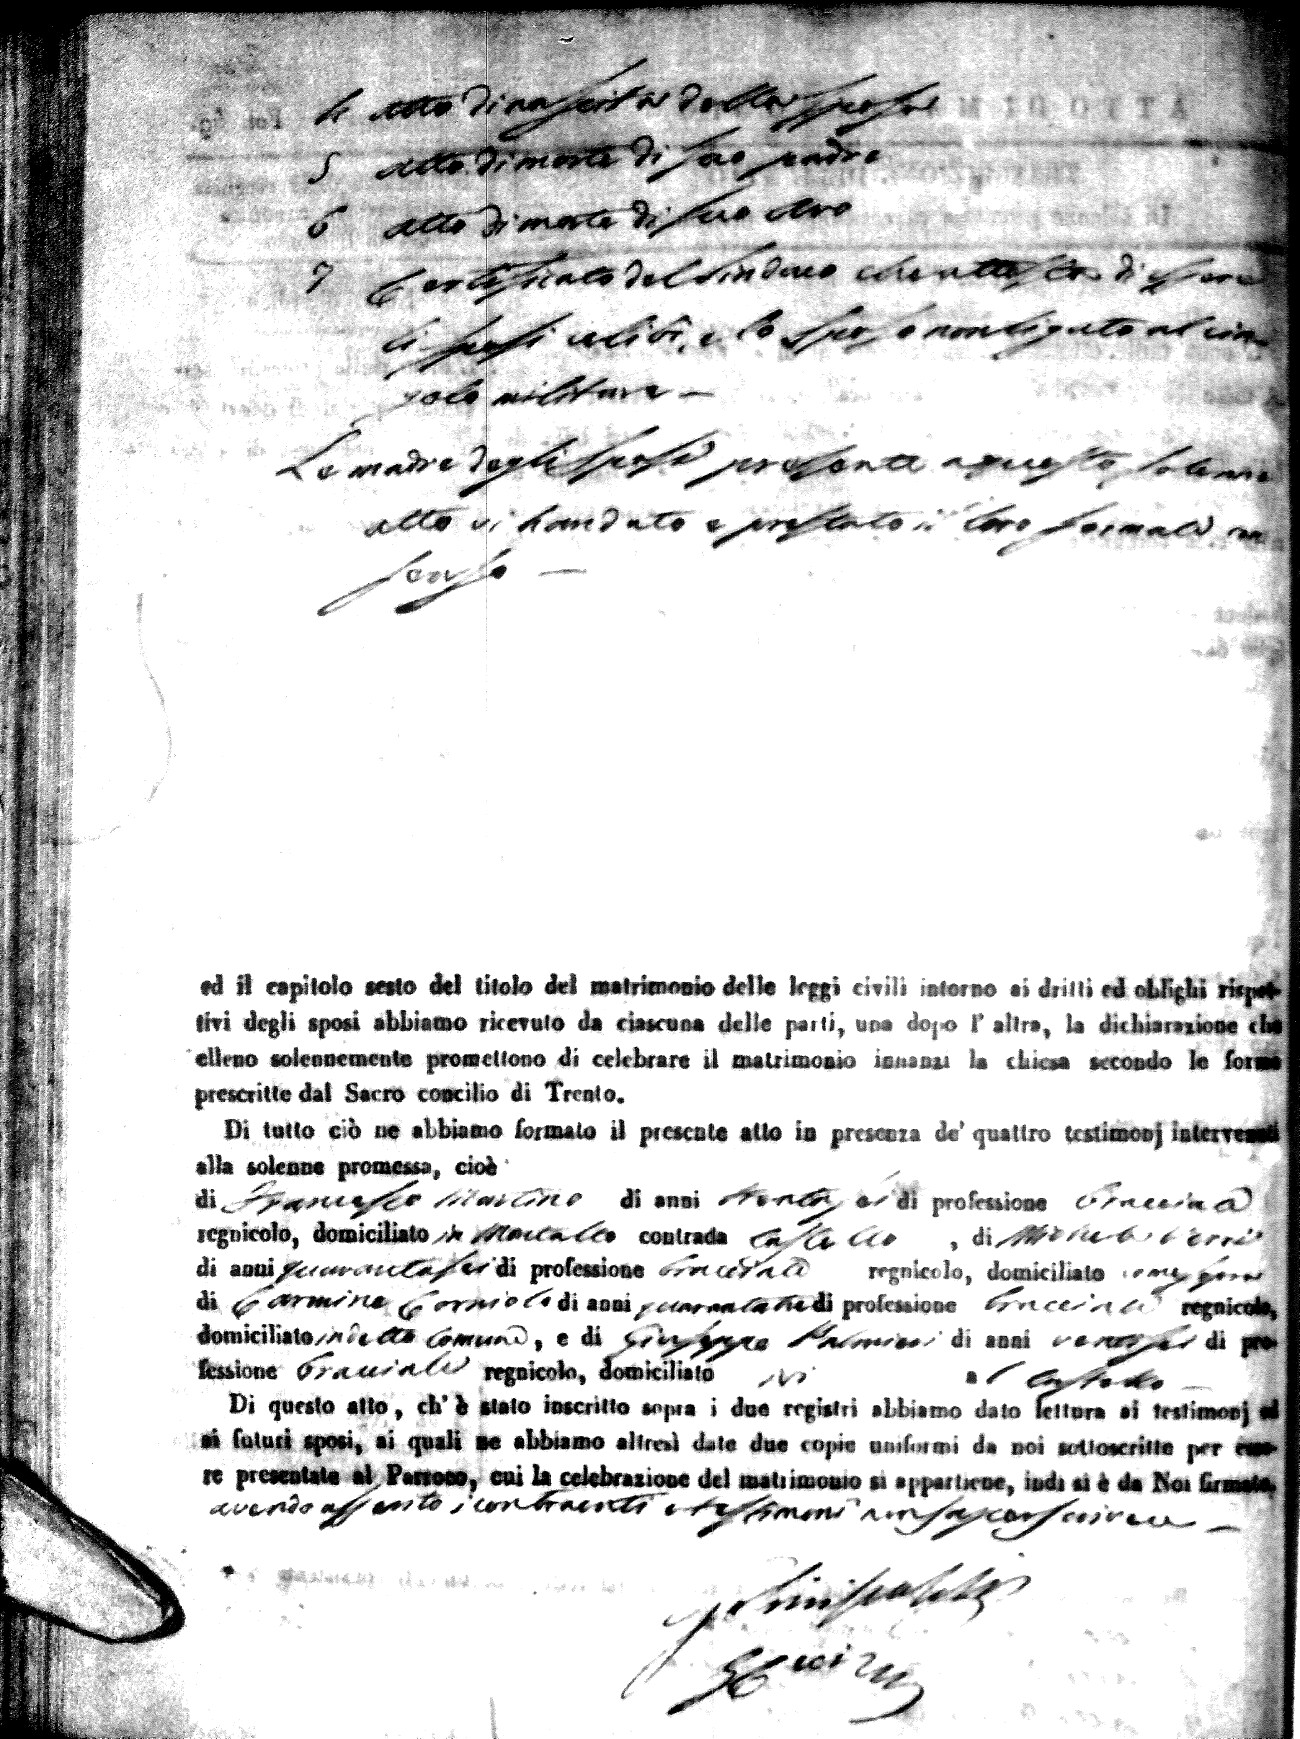 4 atto di nascita della sposa
5 atto di morte di suo padre
6 atto di morte di suo Avo
7 Certificato del Sindaco che attesta di essere
li sposi celibi, e lo sposo non ligato al cin-
golo militare —
Le madre degli sposi presente a questo solenne
atto vi han dato e prestato il loro formale con
senso —
ed il capitolo sesto del titolo del matrimonio delle leggi civili intorno ai dritti ed oblighi rispet-
tivi degli sposi abbiamo ricevuto da ciascuna delle parti, una dopo l' altra, la dichiarazione che
elleno solennemente promettono di celebrare il matrimonio innanzi la chiesa secondo le forme
prescritte dal Sacro concilio di Trento.
Di tutto ciò ne abbiamo formato il presente atto in presenza de' quattro testimonj intervenuti
alla solenne promessa, cioè
di Francesco Martino di anni trentasei di professione bracciale
regnicolo, domiciliato in contrada Castello , di Michele
di anni quarantasei di professione bracciale regnicolo, domiciliato come sopra
di Carmine di anni di professione bracciale regnicolo,
domiciliato in detto Comune, e di Giuseppe Palmieri di anni ventisei di pro-
fessione bracciale regnicolo, domiciliato ivi al Castello —
Di questo atto, ch' è stato inscritto sopra i due registri abbiamo dato lettura ai testimonj ed
ai futuri sposi, ai quali ne abbiamo altresì date due copie uniformi da noi sottoscritte per esse-
re presentate al Parroco, cui la celebrazione del matrimonio si appartiene, indi si è da Noi firmato,
avendo asserito i contraenti e testimoni non saper scrivere —